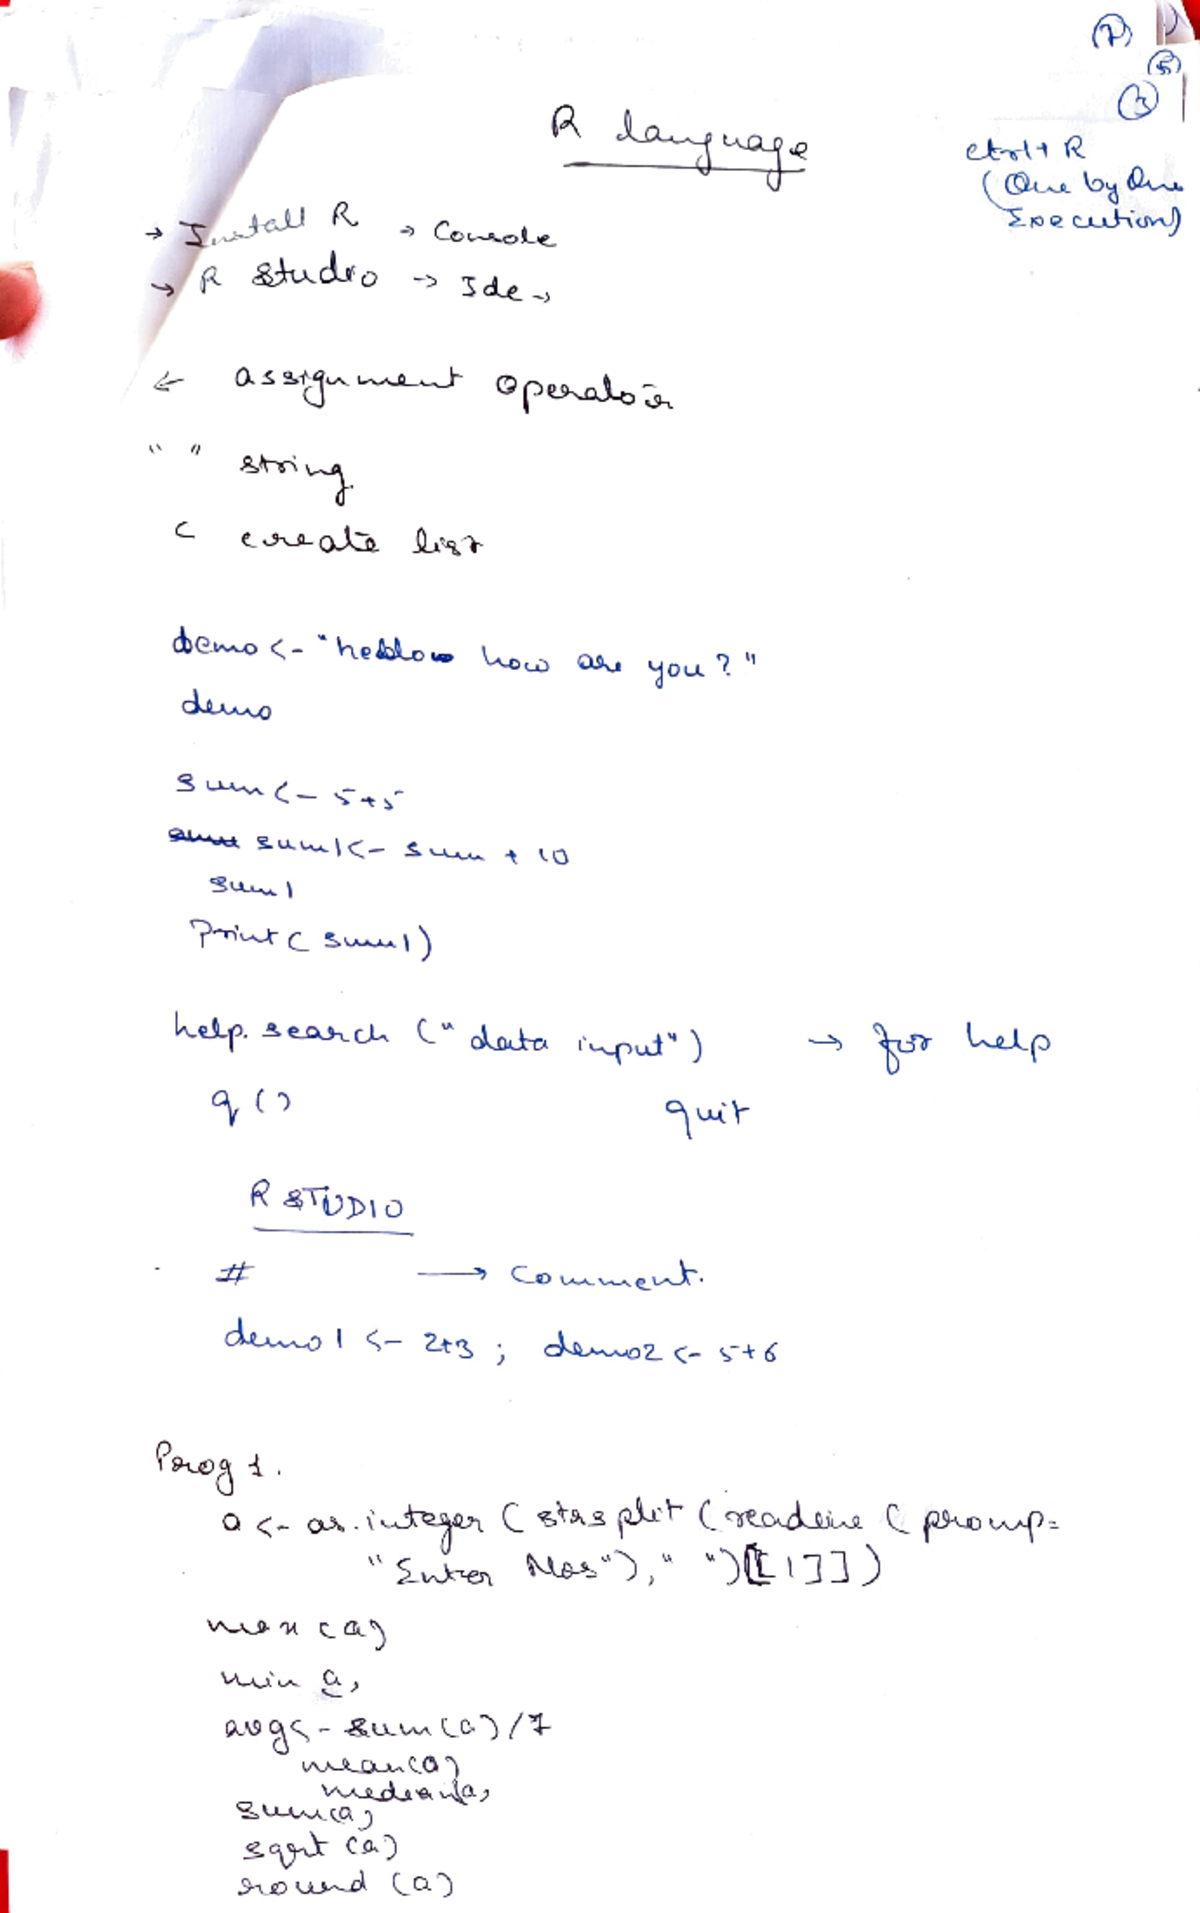 7
5
3
R language
ctrl+ R
(One by One
Execution)
→ Install R → Console
→ R Studio → Ide →
← assignment operator
" " string
C create list
demo <- "hello how are you?"
demo
sum <- 5+5
sum1 <- sum + 10
sum1
Print ( sum1)
help.search (" data input") → for help
q () quit
R STUDIO
# → Comment.
demo1 <- 2+3 ; demo2 <- 5+6
Prog 1.
a <- as.integer ( strsplit ( readline ( promp=
"Enter Nos"), " ")[[1]])
max (a)
min a,
avg <- sum(a) /7
mean(a)
median(a)
sum(a)
sqrt (a)
round (a)